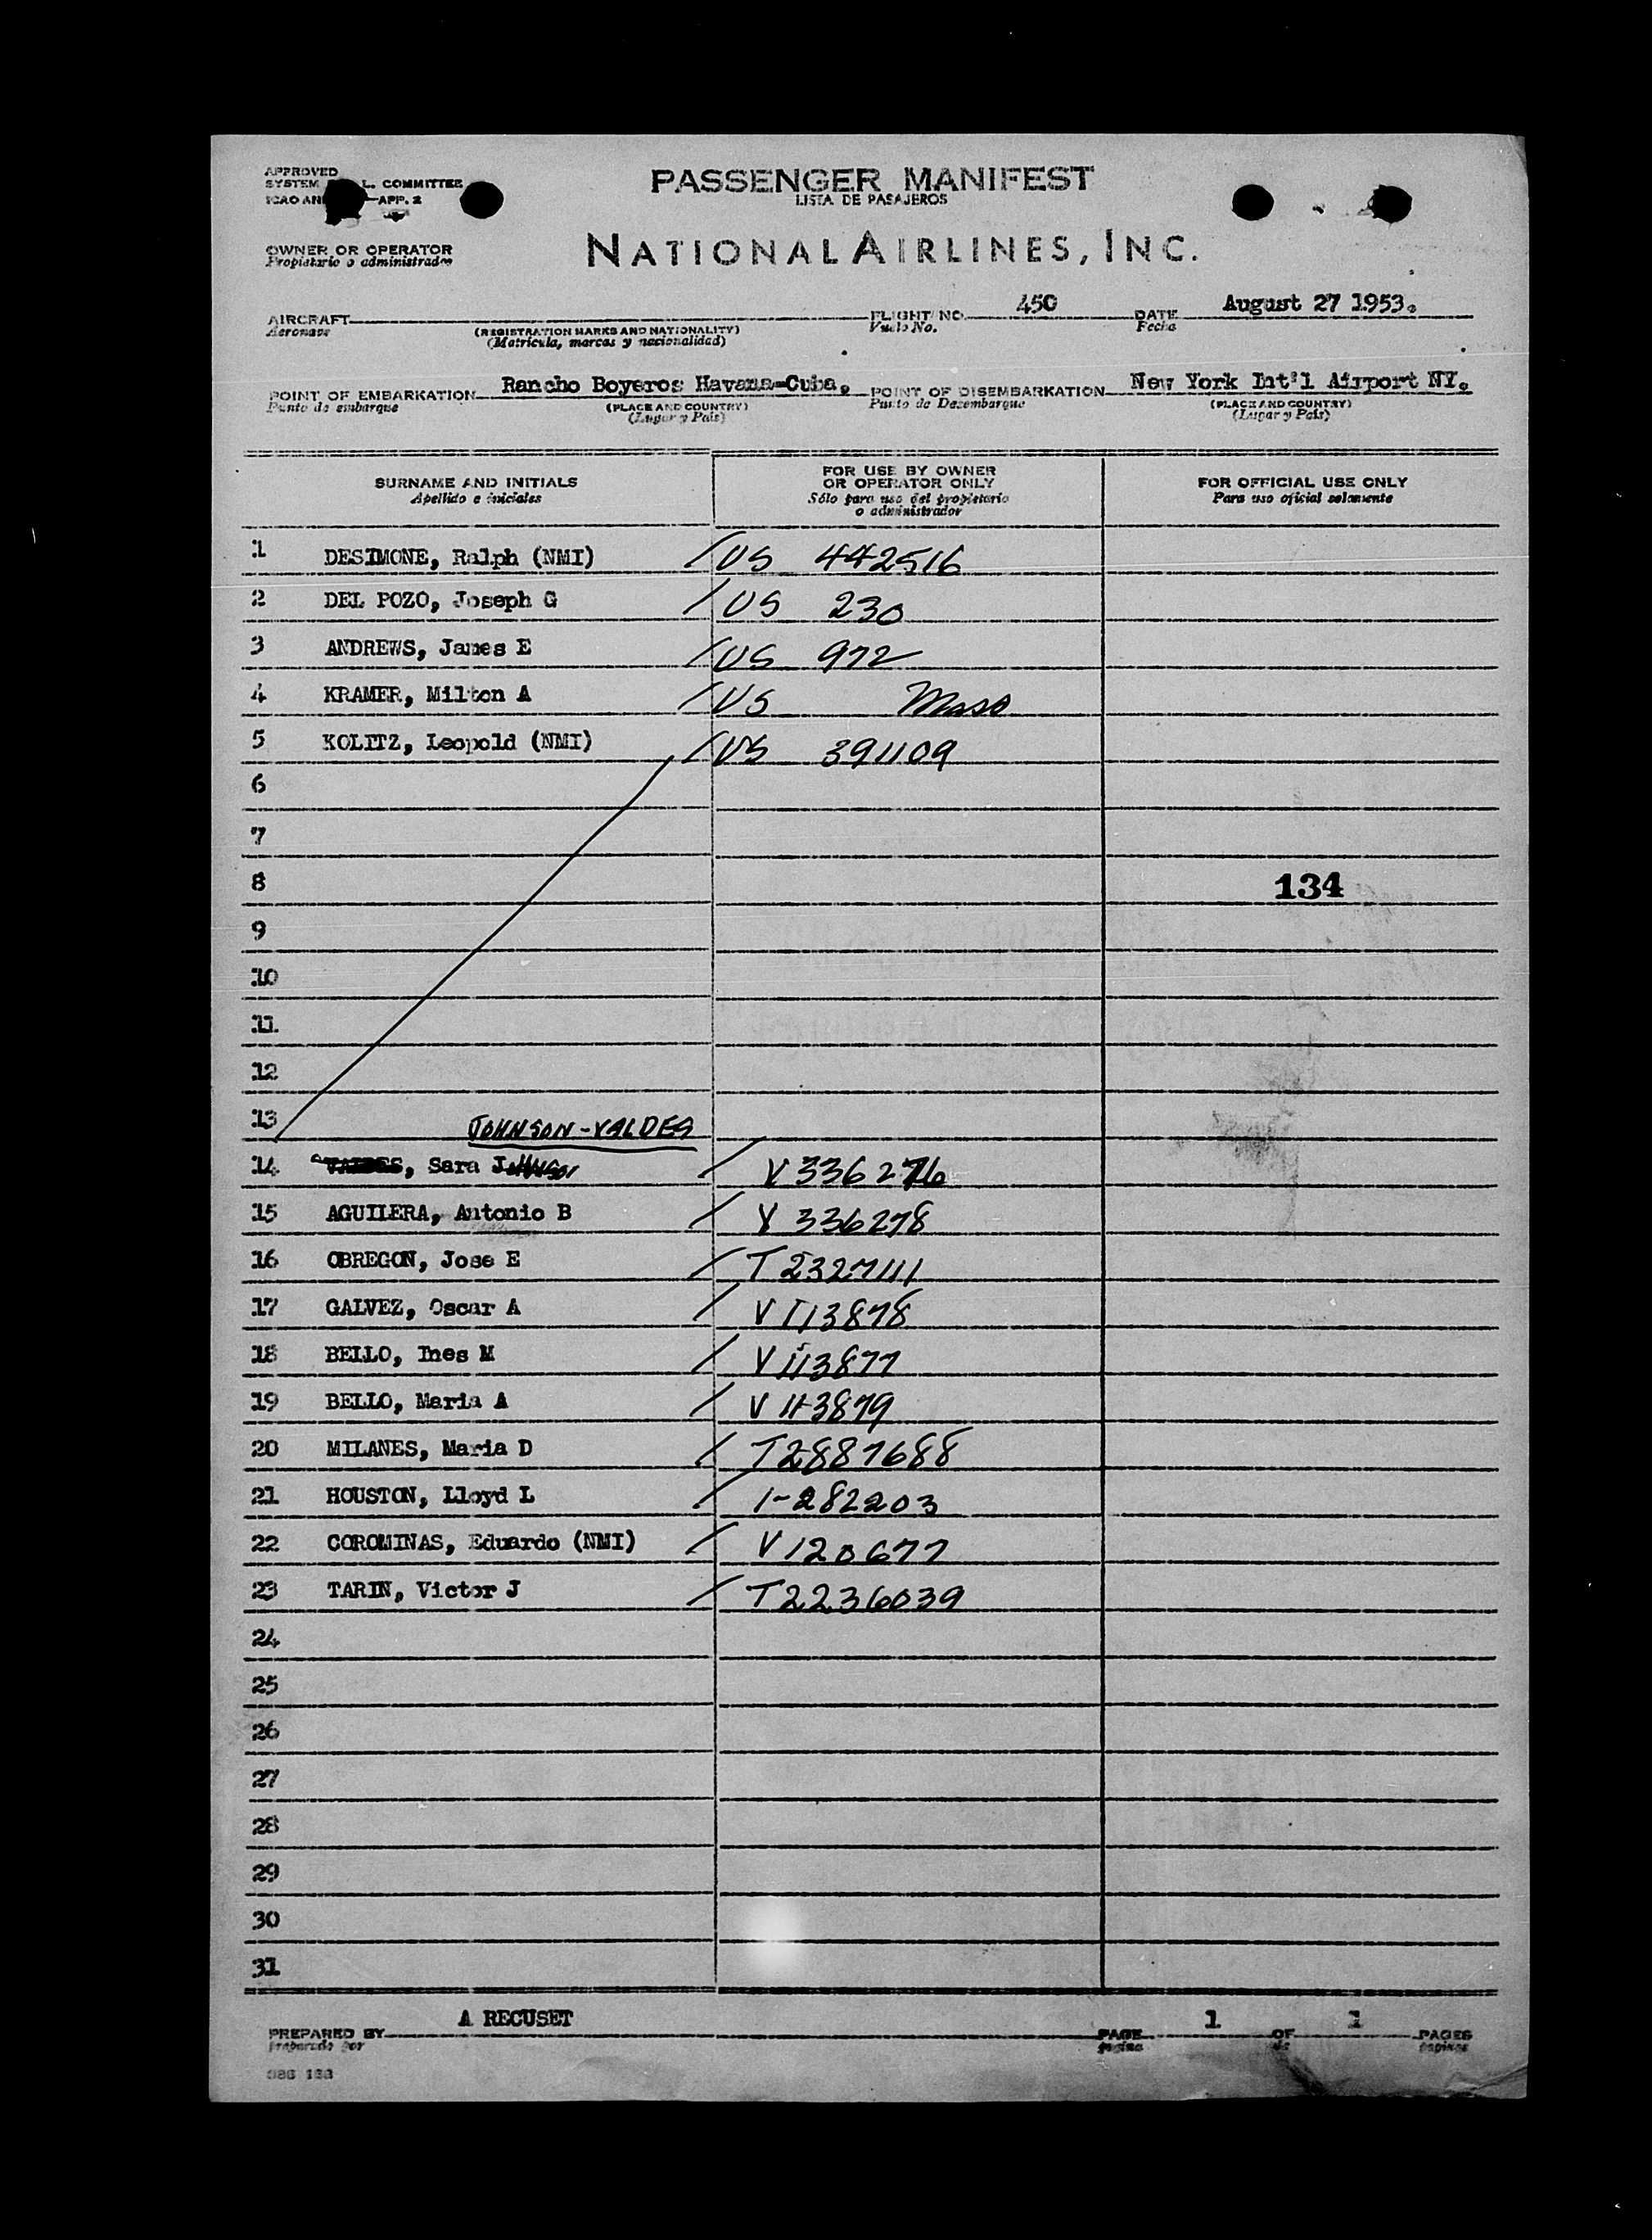 APPROVED
SYSTEM L. COMMITTEE
ICAO AN —APP. 2
PASSENGER MANIFEST
LISTA DE PASAJEROS
OWNER OR OPERATOR
Propietario o administrador
NATIONAL AIRLINES, INC.
AIRCRAFT
Aeronave
(REGISTRATION MARKS AND NATIONALITY)
(Matrícula, marcas y nacionalidad)
FLIGHT NO. 450
Vuelo No.
DATE August 27 1953.
Fecha
POINT OF EMBARKATION Rancho Boyeros Havana-Cuba.
Punto de embarque
(PLACE AND COUNTRY)
(Lugar y País)
POINT OF DISEMBARKATION New York Int'l Airport NY.
Punto de Desembarque
(PLACE AND COUNTRY)
(Lugar y País)
SURNAME AND INITIALS
Apellido e iniciales
FOR USE BY OWNER
OR OPERATOR ONLY
Sólo para uso del propietario
o administrador
FOR OFFICIAL USE ONLY
Para uso oficial solamente
1 DESIMONE, Ralph (NMI) / US 442516
2 DEL POZO, Joseph G / US 230
3 ANDREWS, James E / US 972
4 KRAMER, Milton A / US Mass
5 KOLITZ, Leopold (NMI) / US 391109
6
7
8 134
9
10
11
12
13 JOHNSON-VALDES
14 VALDES, Sara Johnson / V336276
15 AGUILERA, Antonio B / V 336278
16 OBREGON, Jose E / T2327111
17 GALVEZ, Oscar A / V 113878
18 BELLO, Ines M / V 113877
19 BELLO, Maria A / V 113879
20 MILANES, Maria D / T2887688
21 HOUSTON, Lloyd L / 1-282203
22 COROMINAS, Eduardo (NMI) / V120677
23 TARIN, Victor J / T2236039
24
25
26
27
28
29
30
31
PREPARED BY A RECUSET
Preparado por
PAGE 1 OF 1 PAGES
página de páginas